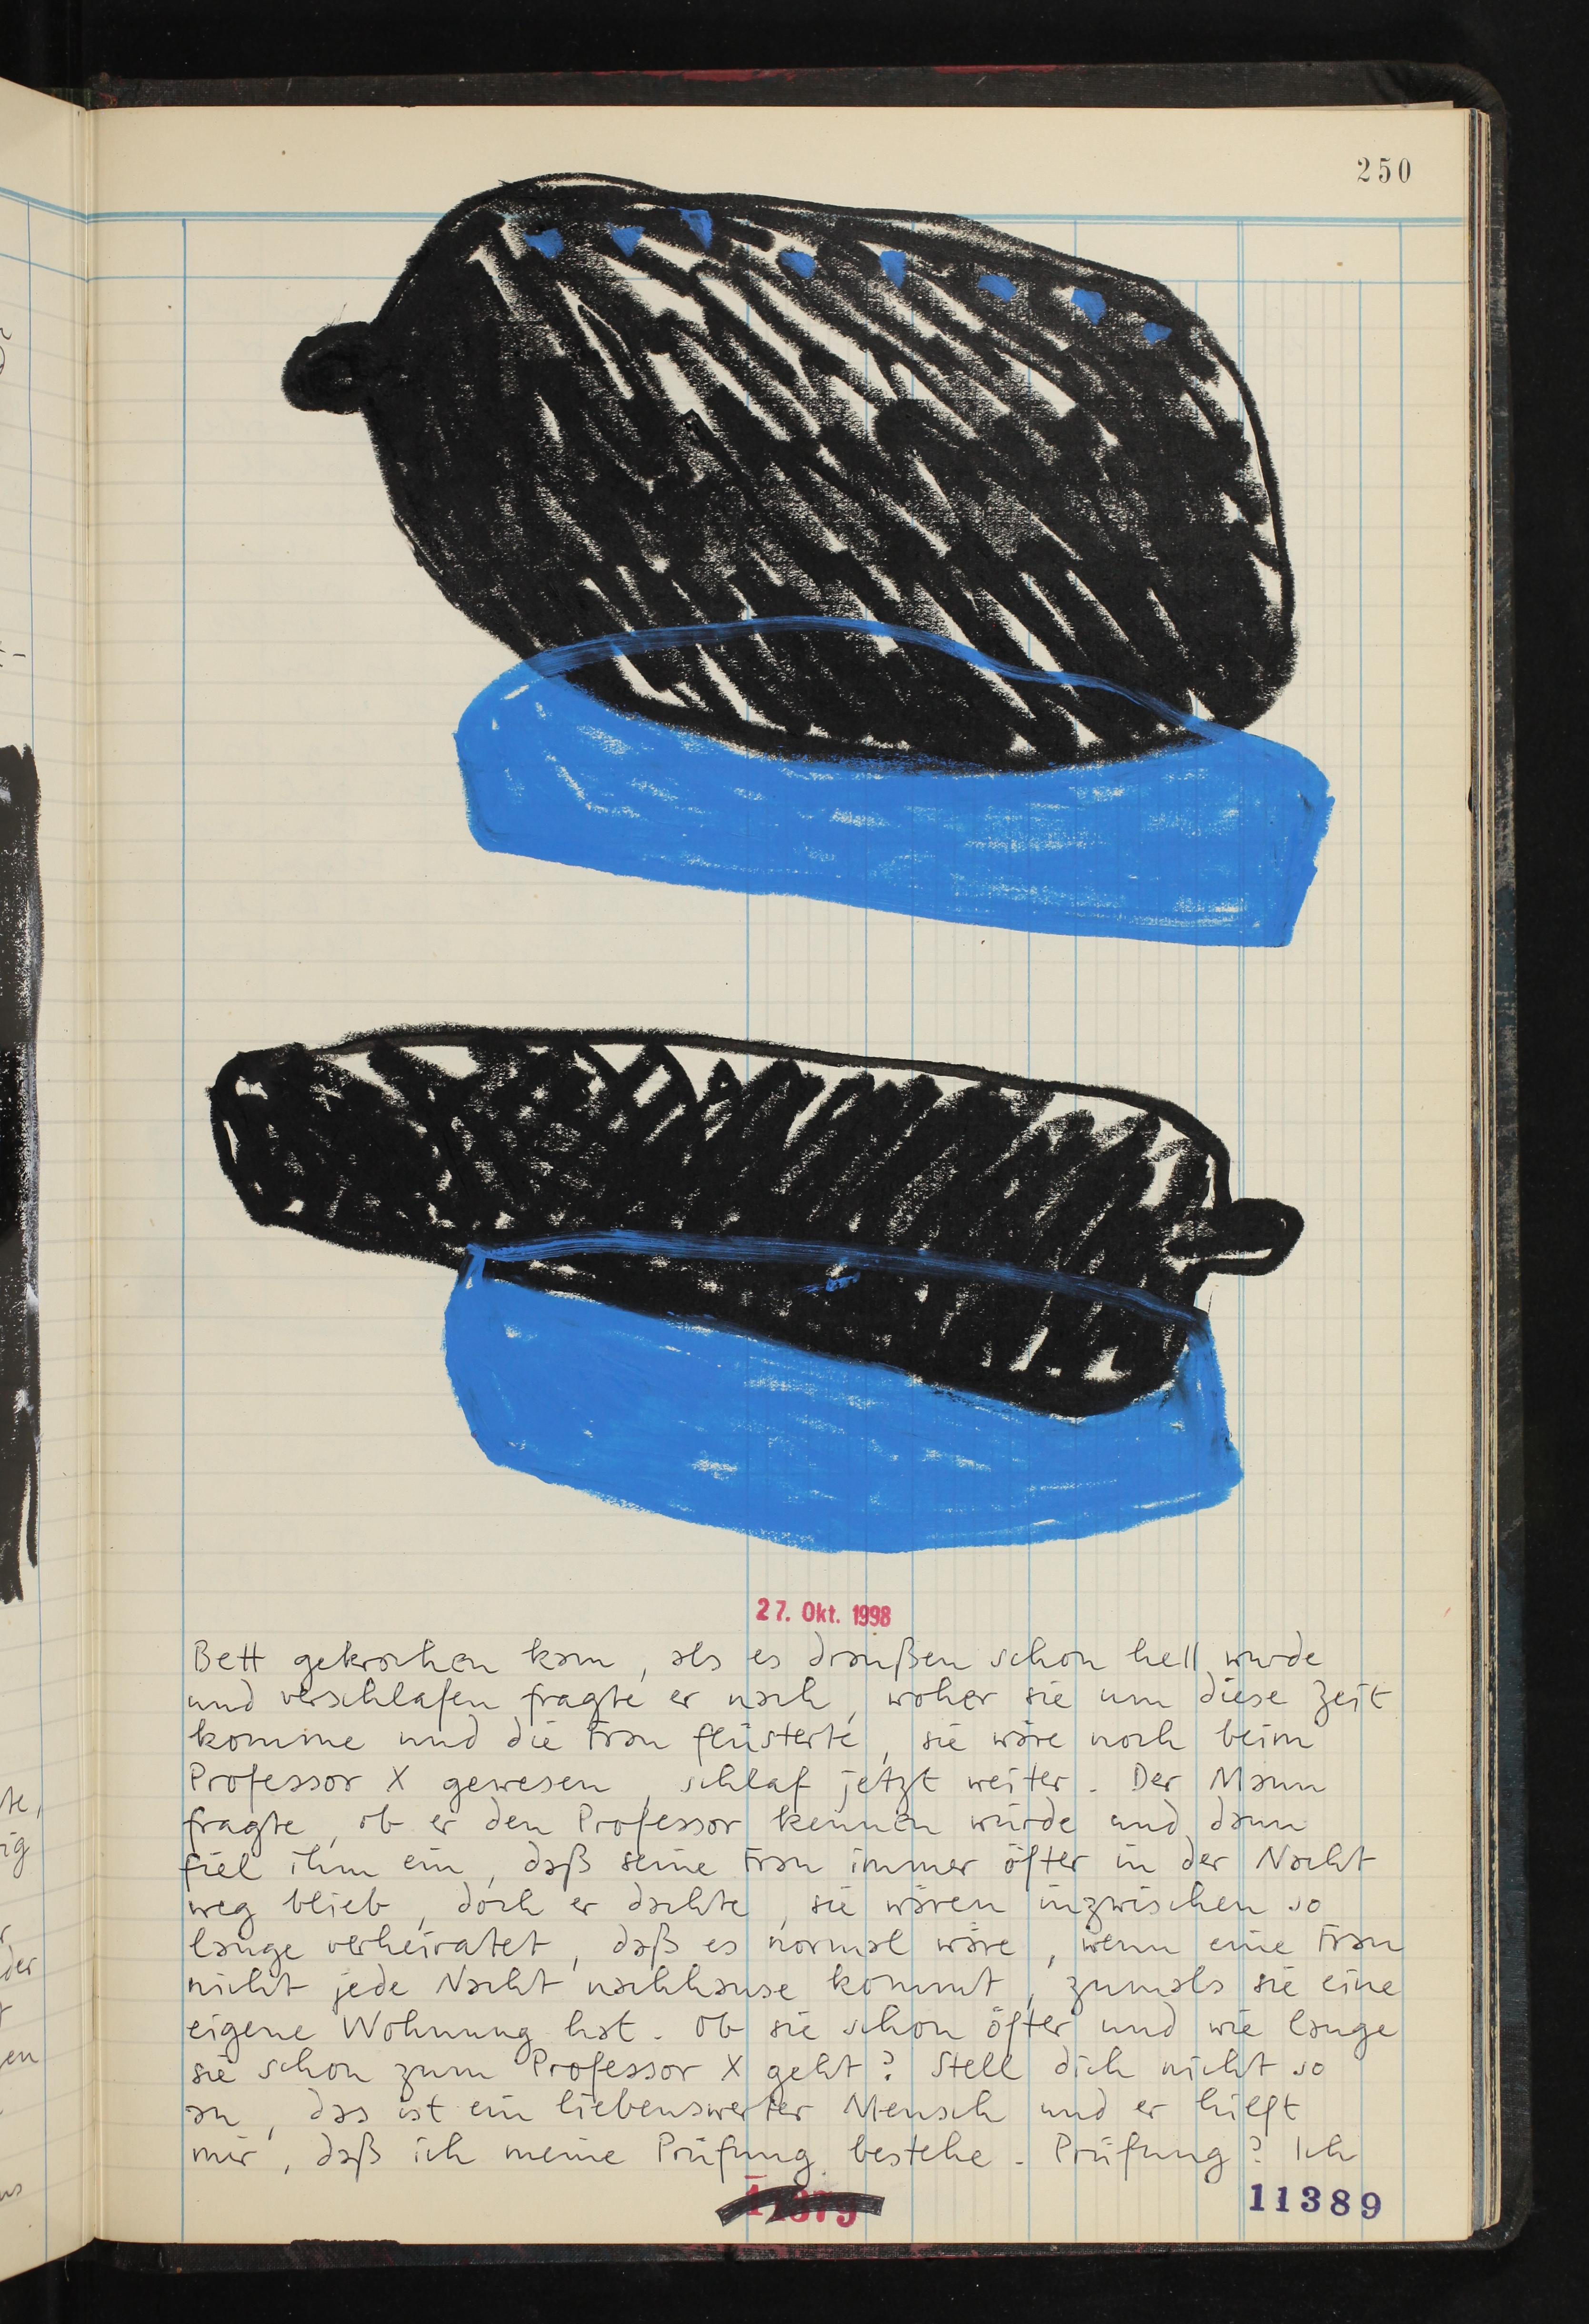 250
27. Okt. 1998
Bett gekrochen kam, als es draußen schon hell wurde
und verschlafen fragte er nach, woher sie um diese Zeit
komme und die Frau flüsterte, sie wäre noch beim
Professor X gewesen, schlaf jetzt weiter. Der Mann
fragte, ob er den Professor kennen würde und dann
fiel ihm ein, daß seine Frau immer öfter in der Nacht
weg blieb, doch er dachte, sie wären inzwischen so
lange verheiratet, daß es normal wäre, wenn eine Frau
nicht jede Nacht nachhause kommt, zumals sie eine
eigene Wohnung hat. Ob sie schon öfter und wie lange
sie schon zum Professor X geht? Stell dich nicht so
an, das ist ein liebenswerter Mensch und er hilft
mir, daß ich meine Prüfung bestehe. Prüfung? Ich
11389